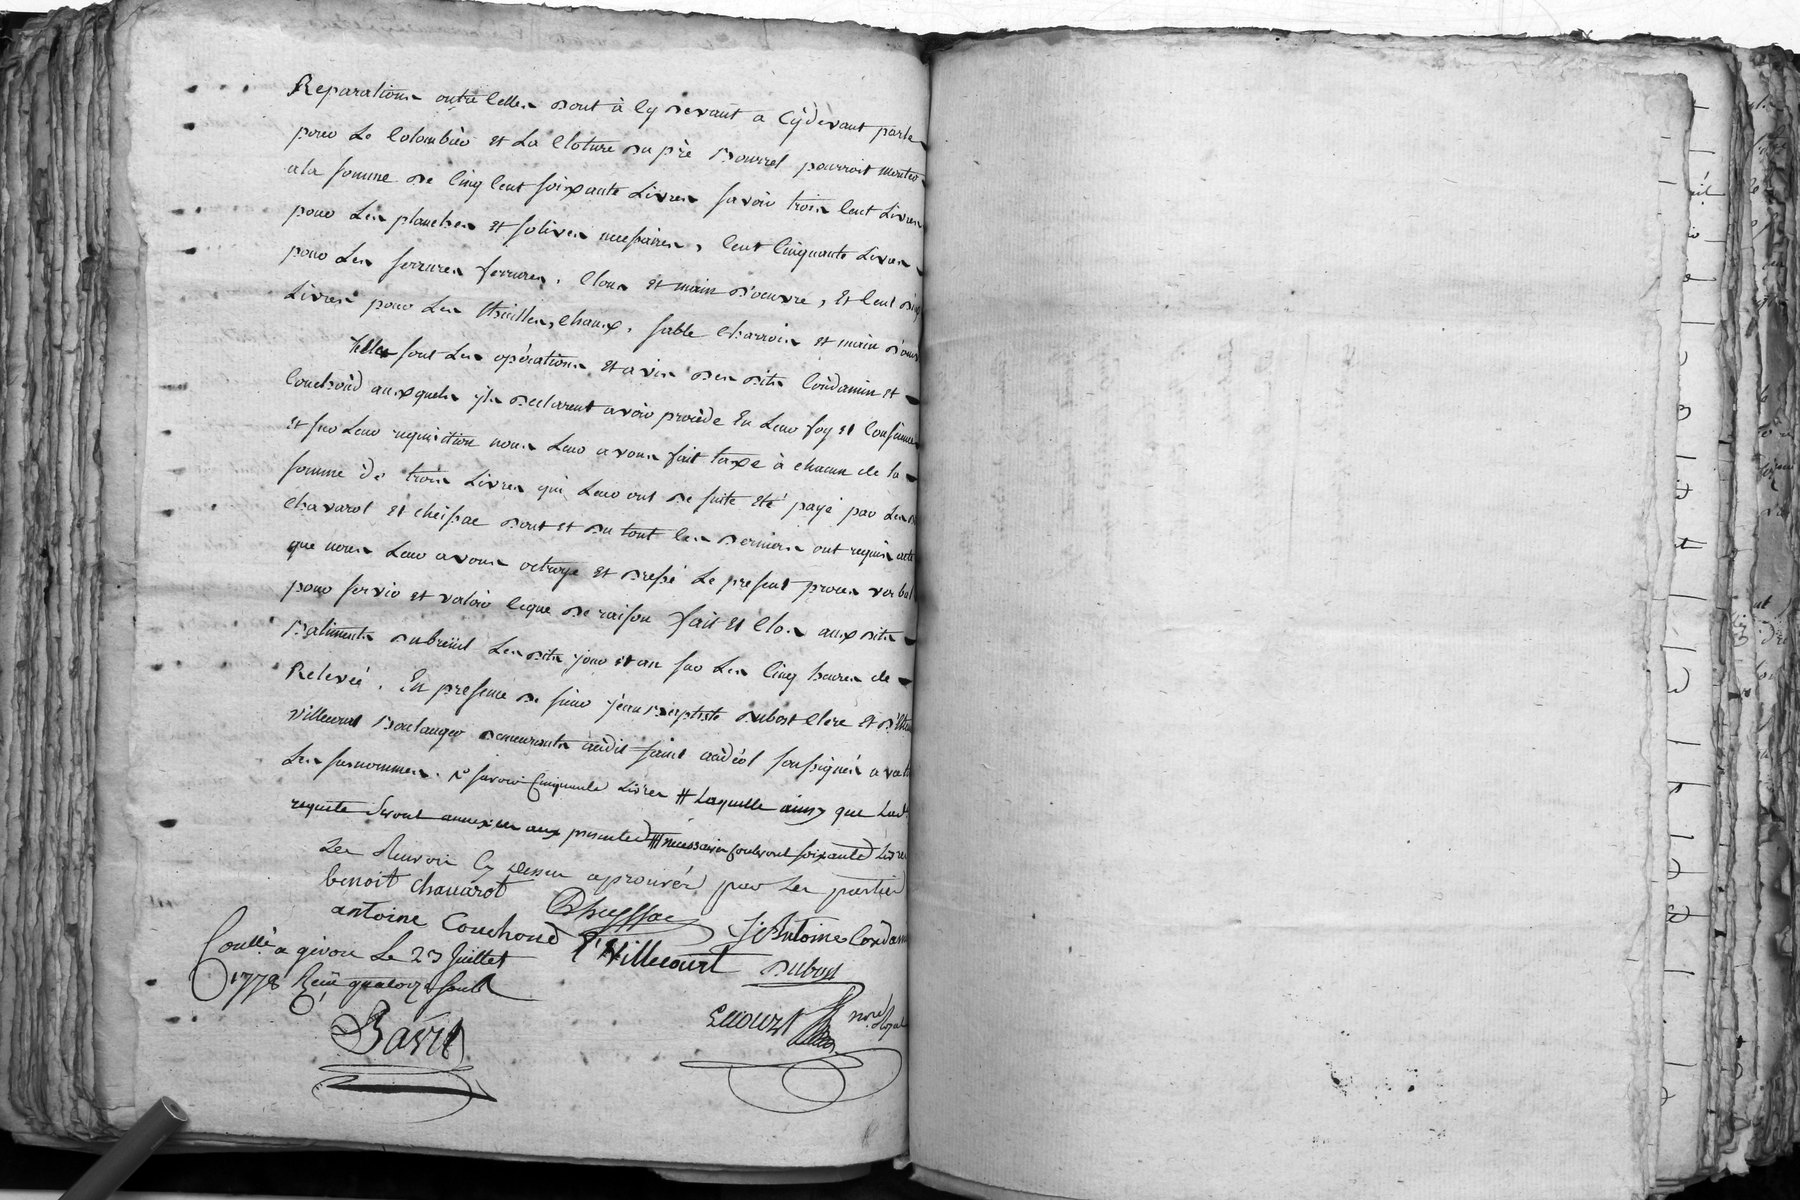 Reparations outre celles dont à cy devant a cydevant parlé
pour Le Colombier et La Cloture du pré Bourrel pourroit monter
ala somme de Cinq Cent soixante Livres savoir trois Cent Livres
pour Les planches et solives necessaires, Cent Cinquante Livres
pour Les serrures ferrures, Clous et main d'oeuvre, et Cent dix
Livres pour Les thuilles, chaux, sable charrois et main d'œuv
Telles sont Les opérations et avis des dits Condamin et
Couchoud auxquels ils declarent avoir procédé En Leur foy et Conscience
et sur Leur requisition nous Leur avons fait taxe à chacun de la
somme de trois Livres qui Leur ont de suite été payé par Les d
chavarot et cheissac dont et du tout les derniers ont requis acte
que nous Leur avons octroyé et dressé Le present procès verbal
pour servir et valoir ceque de raison fait et Clos aux dits
Batiments dubreüil Les dits jour et an sur Les Cinq heures de
Relevée. En presence de sieur jean Baptiste dubost clerc et d'
villecourt Boulanger demeurants audit saint andéol soussignés avec
Les susnommés. savoir Cinquante Livres # Laquelle ainsy que Lad
requete seront annexées aux presentes # necessaires Cent soixante Livres
Les Renvois Cy dessus aprouvés par Les parties
benoit chavarot
Cheyssac
antoine Couchoud
J Antoine Condam
Villecourt
Dubost
Conllé a givors Le 23 Juillet
1778 Reçu quatorze sous
Bavit
not Royal